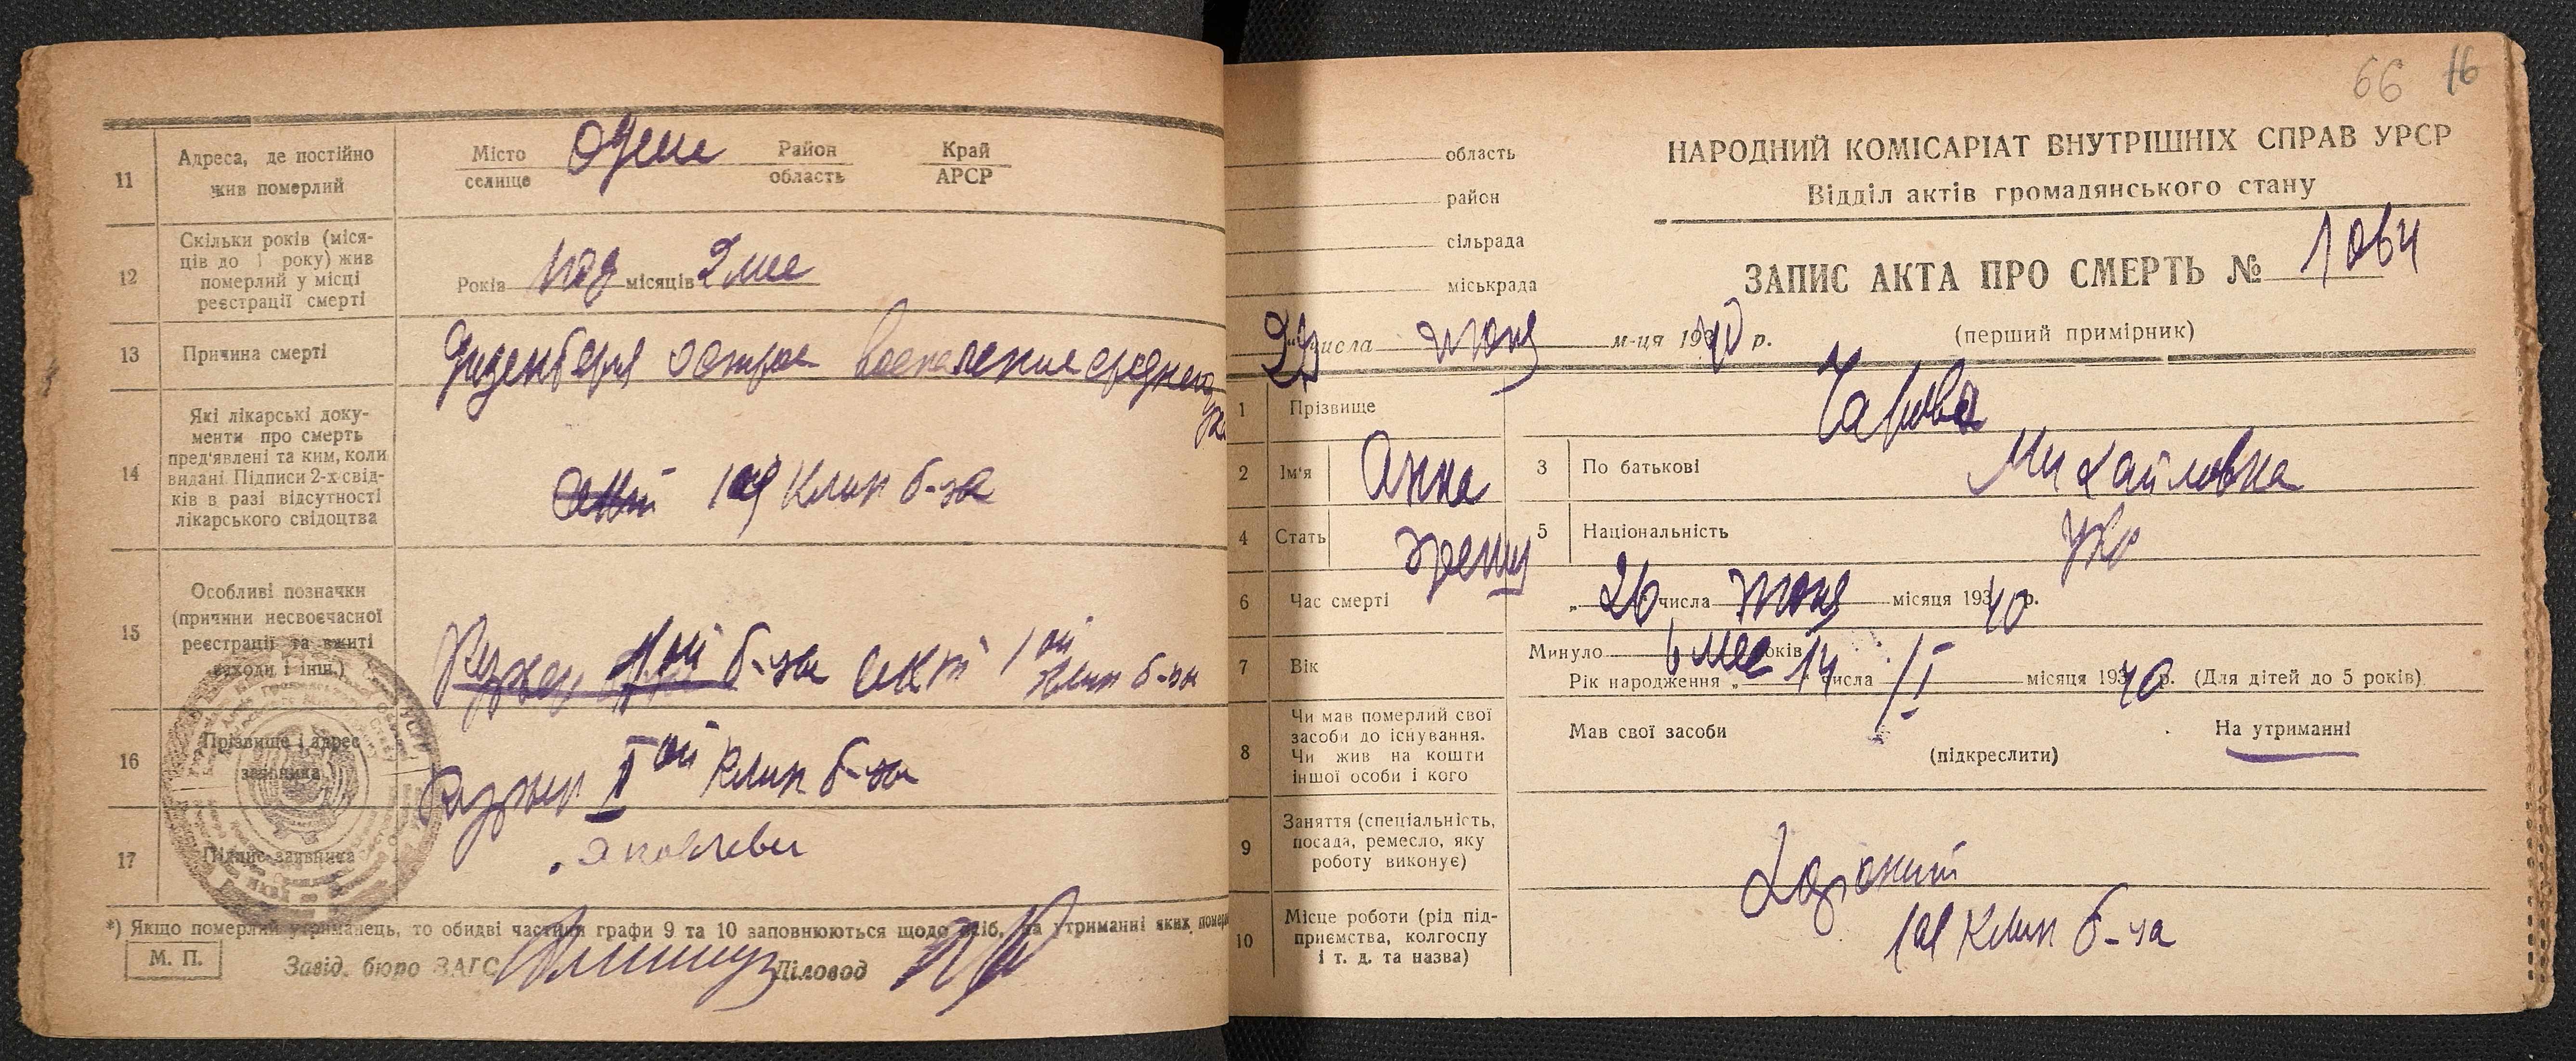 11
Адреса, де постійно
жив померлий
Місто Одесе Район Край
селище область АРСР
12
Скільки років (міся-
ців до 1 року) жив
померлий у місці
реєстрації смерті
Років місяців 2 мес
13
Причина смерті
Дизентерия острое воспаление среднего
14
Які лікарські доку-
менти про смерть
пред'явлені та ким, коли
видані. Підписи 2-х свід-
ків в разі відсутності
лікарського свідоцтва
1ая Клин б-ца
15
Особливі позначки
(причини несвоєчасної
реєстрації та вжиті
заходи і інш.)
б-ца акт 1ой клин б-цы
16
Прізвище і адрес
заявника
I ой Клин б-ца
17
Підпис заявника
Яковлева
*) Якщо померлий утриманець, то обидві частини графи 9 та 10 заповнюються щодо осіб, на утриманні яких помер
М. П.
Завід. бюро ЗАГС
Діловод
66 16
область
район
сільрада
міськрада
НАРОДНИЙ КОМІСАРІАТ ВНУТРІШНІХ СПРАВ УРСР
Відділ актів громадянського стану
ЗАПИС АКТА ПРО СМЕРТЬ № 1064
числа июня м-ця 1940 р. (перший примірник)
1 Прізвище
2 Ім'я Анна 3 По батькові Михайловна
4 Стать женщ 5 Національність укр
6 Час смерті „26 числа июня місяця 1940 р.
7 Вік
Минуло 6 мес років
Рік народження „14 числа I місяця 1940 р. (Для дітей до 5 років)
8
Чи мав померлий свої
засоби до існування.
Чи жив на кошти
іншої особи і кого
Мав свої засоби На утриманні
(підкреслити)
9
Заняття (спеціальність,
посада, ремесло, яку
роботу виконує)
10
Місце роботи (рід під-
приємства, колгоспу
і т. д. та назва)
1ая Клин б-ца